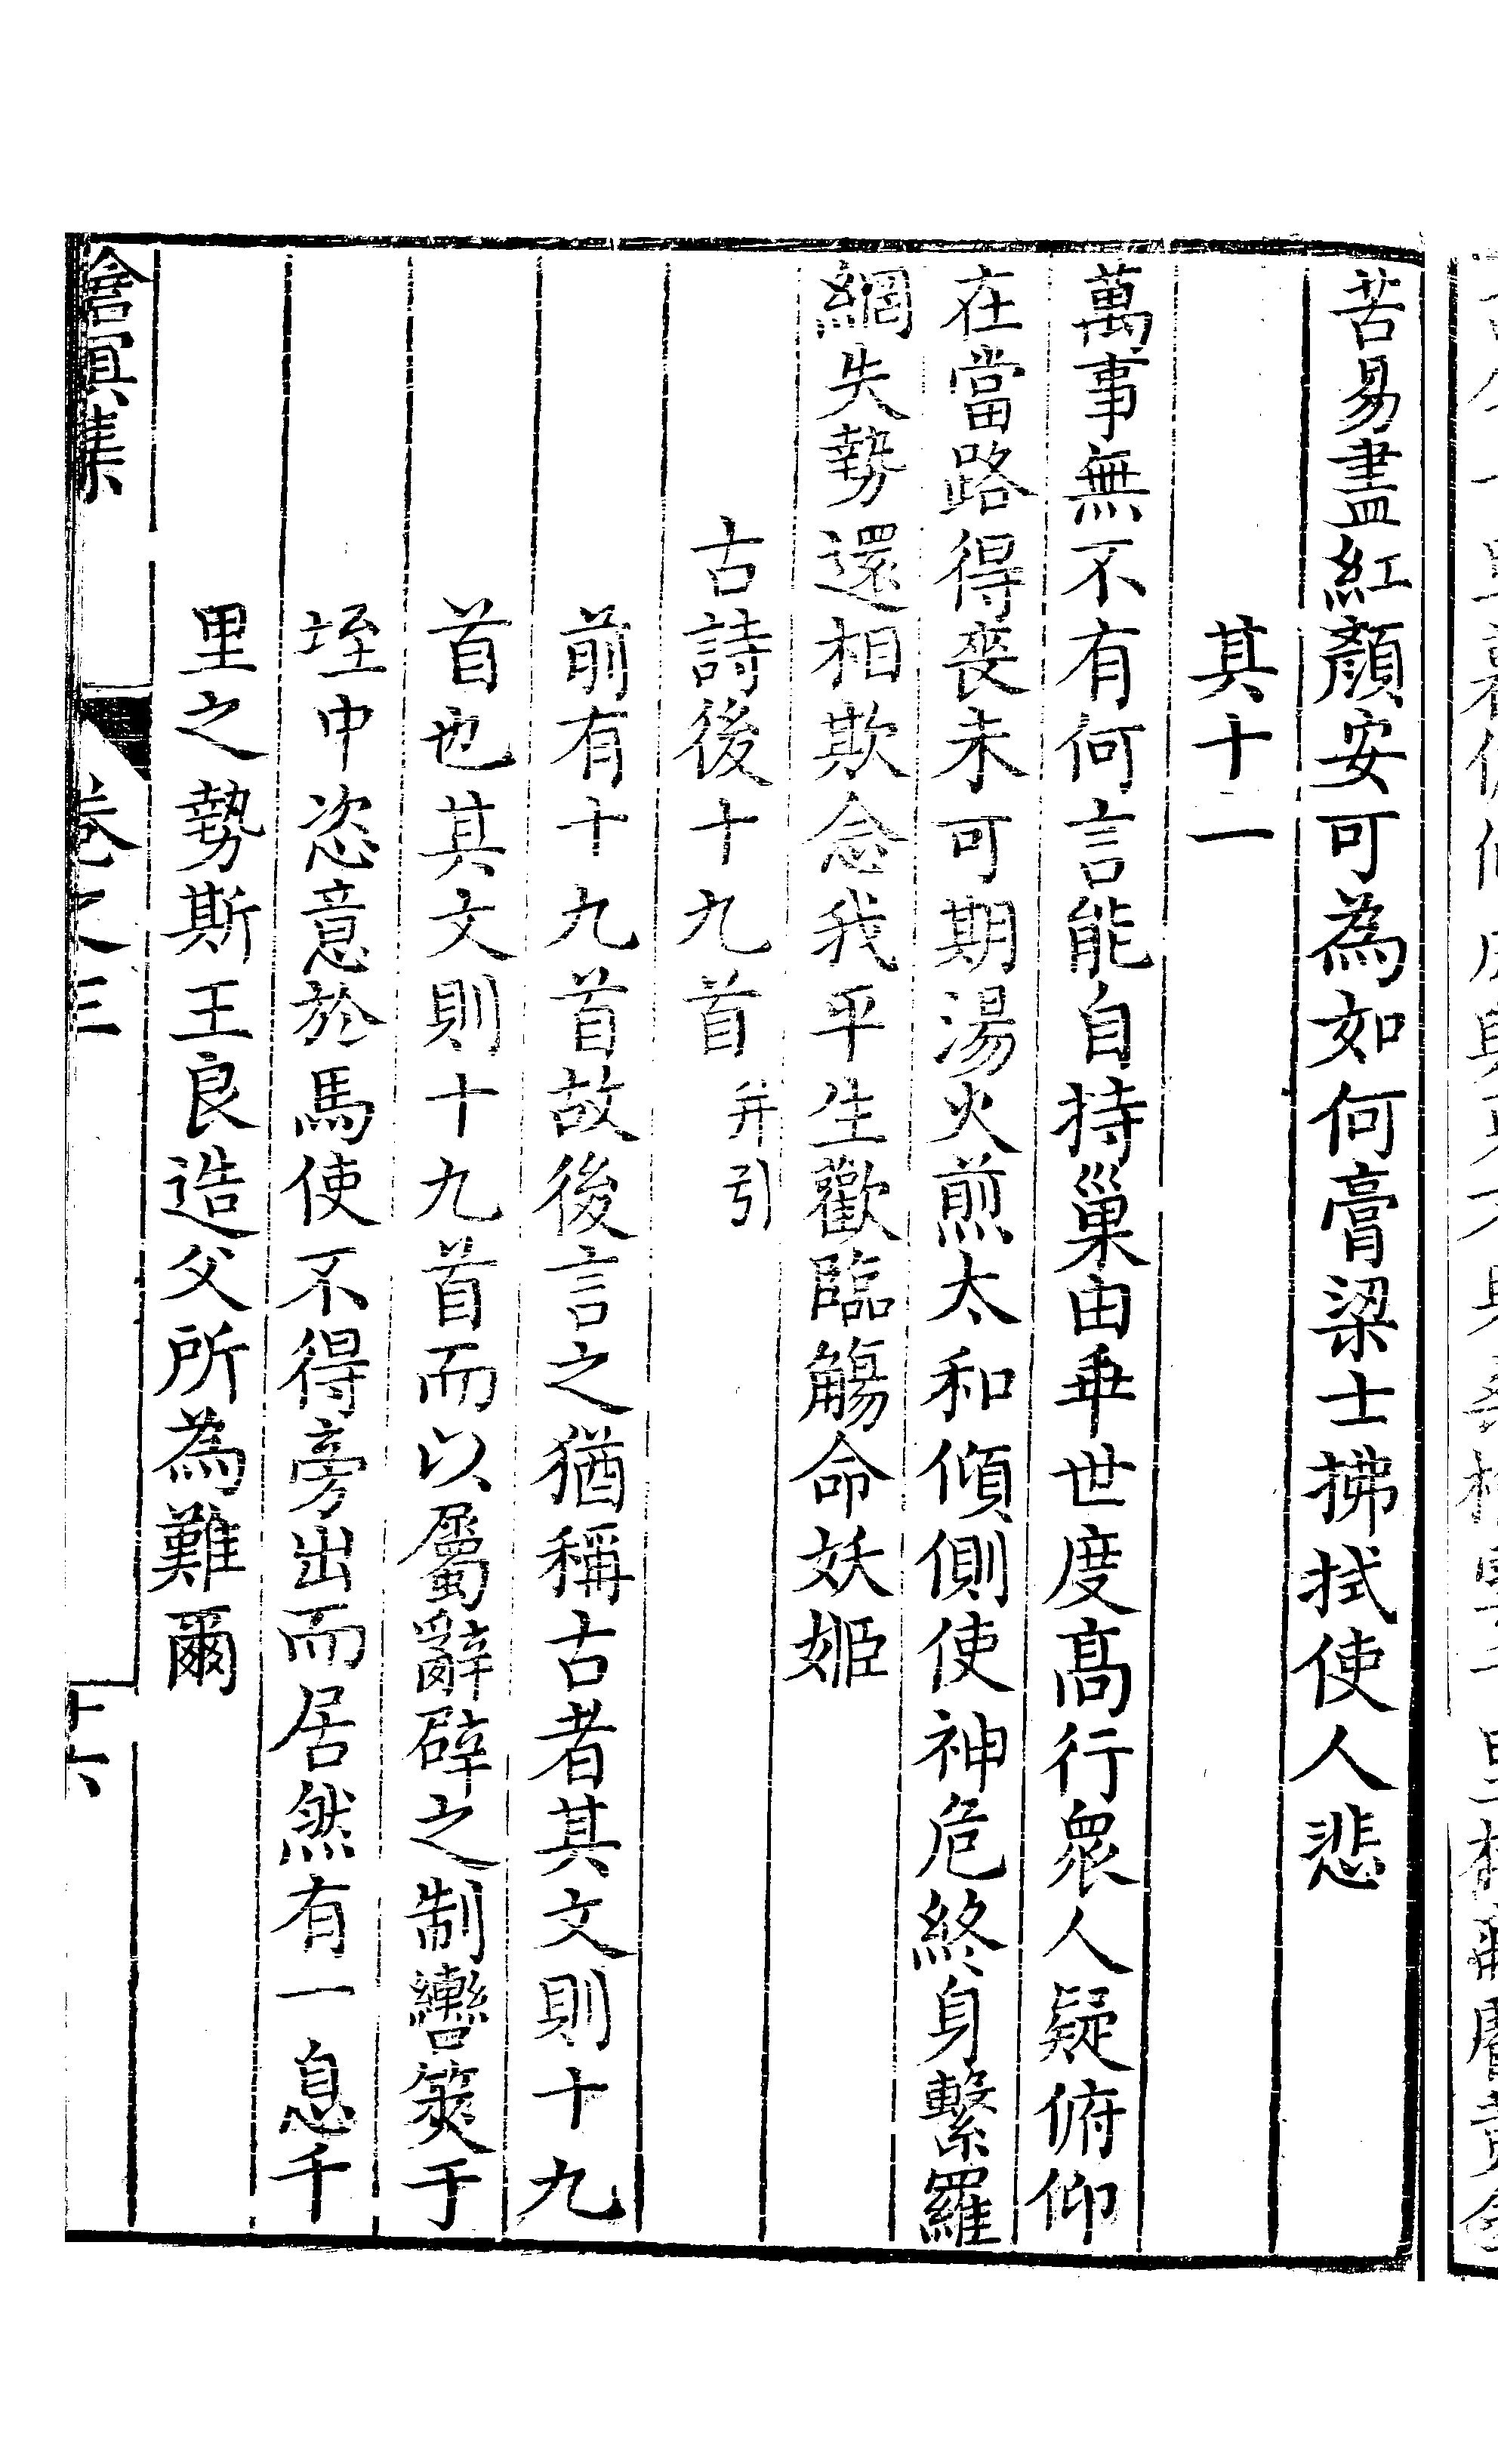 苦易盡紅顏安可為如何膏粱士拂拭使人悲
其十一
萬事無不有何言能自持巢由垂世度高行衆人疑俯仰
在當路得喪未可期湯火煎太和傾側使神危終身繫羅
網失勢還相欺念我平生歡臨觴命妖姬
古詩後十九首并引
前有十九首故後言之猶稱古者其文則十九
首也其文則十九首而以屬辭辟之制轡筴于
垤中恣意於馬使不得旁出而居然有一息千
里之勢斯王良造父所為難爾
滄溟集
卷之三
十六